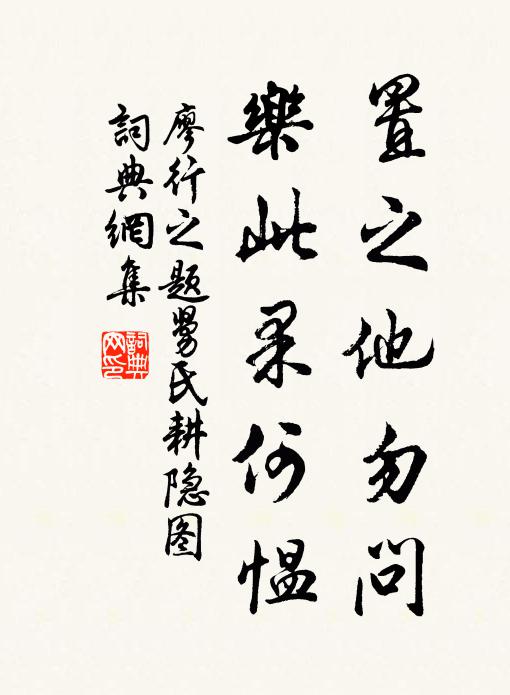 置之他勿問
樂此果何慍
廖行之題舅氏耕隐图
詞典網集
詞典网印